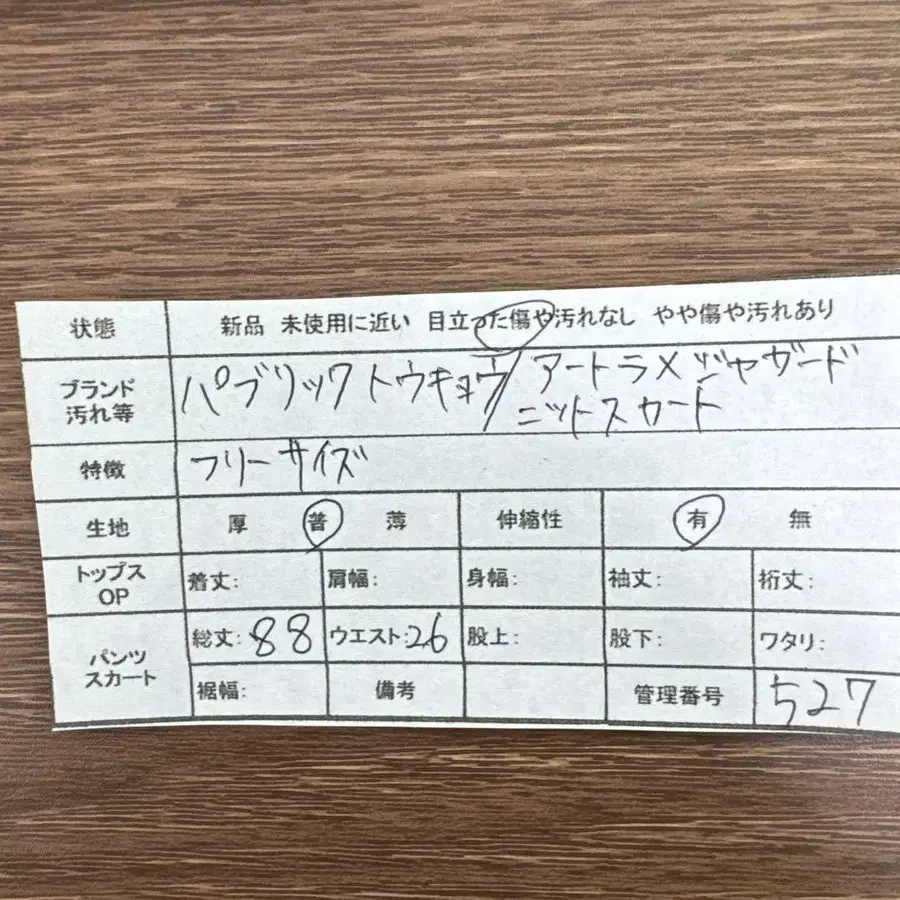 状態 新品 未使用に近い 目立った傷や汚れなし やや傷や汚れあり
ブランド 汚れ等 パブリックトウキョウ/アートラメジャガード
ニットスカート
特徴 フリーサイズ
生地 厚 普 薄 伸縮性 有 無
トップス OP 着丈: 肩幅: 身幅: 袖丈: 裄丈:
パンツ スカート 総丈:88 ウエスト:26 股上: 股下: ワタリ:
裾幅: 備考 管理番号 527